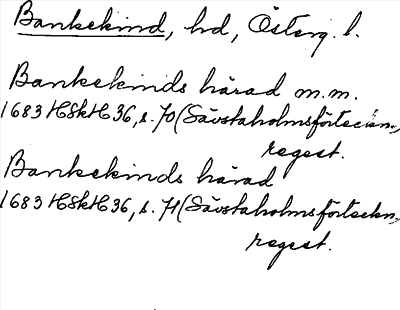 Bankekind, hd, Österg. l.
Bankekinds härad m.m.
1683 HSkH 36, s. 70 (Sävstaholmsförteckn.,
regest.
Bankekinds härad
1683 HSkH 36, s. 71 (Sävstaholmsförteckn.,
regest.